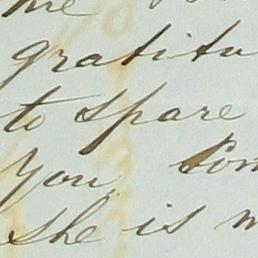 gratitu
to spare
you. Som
she is m